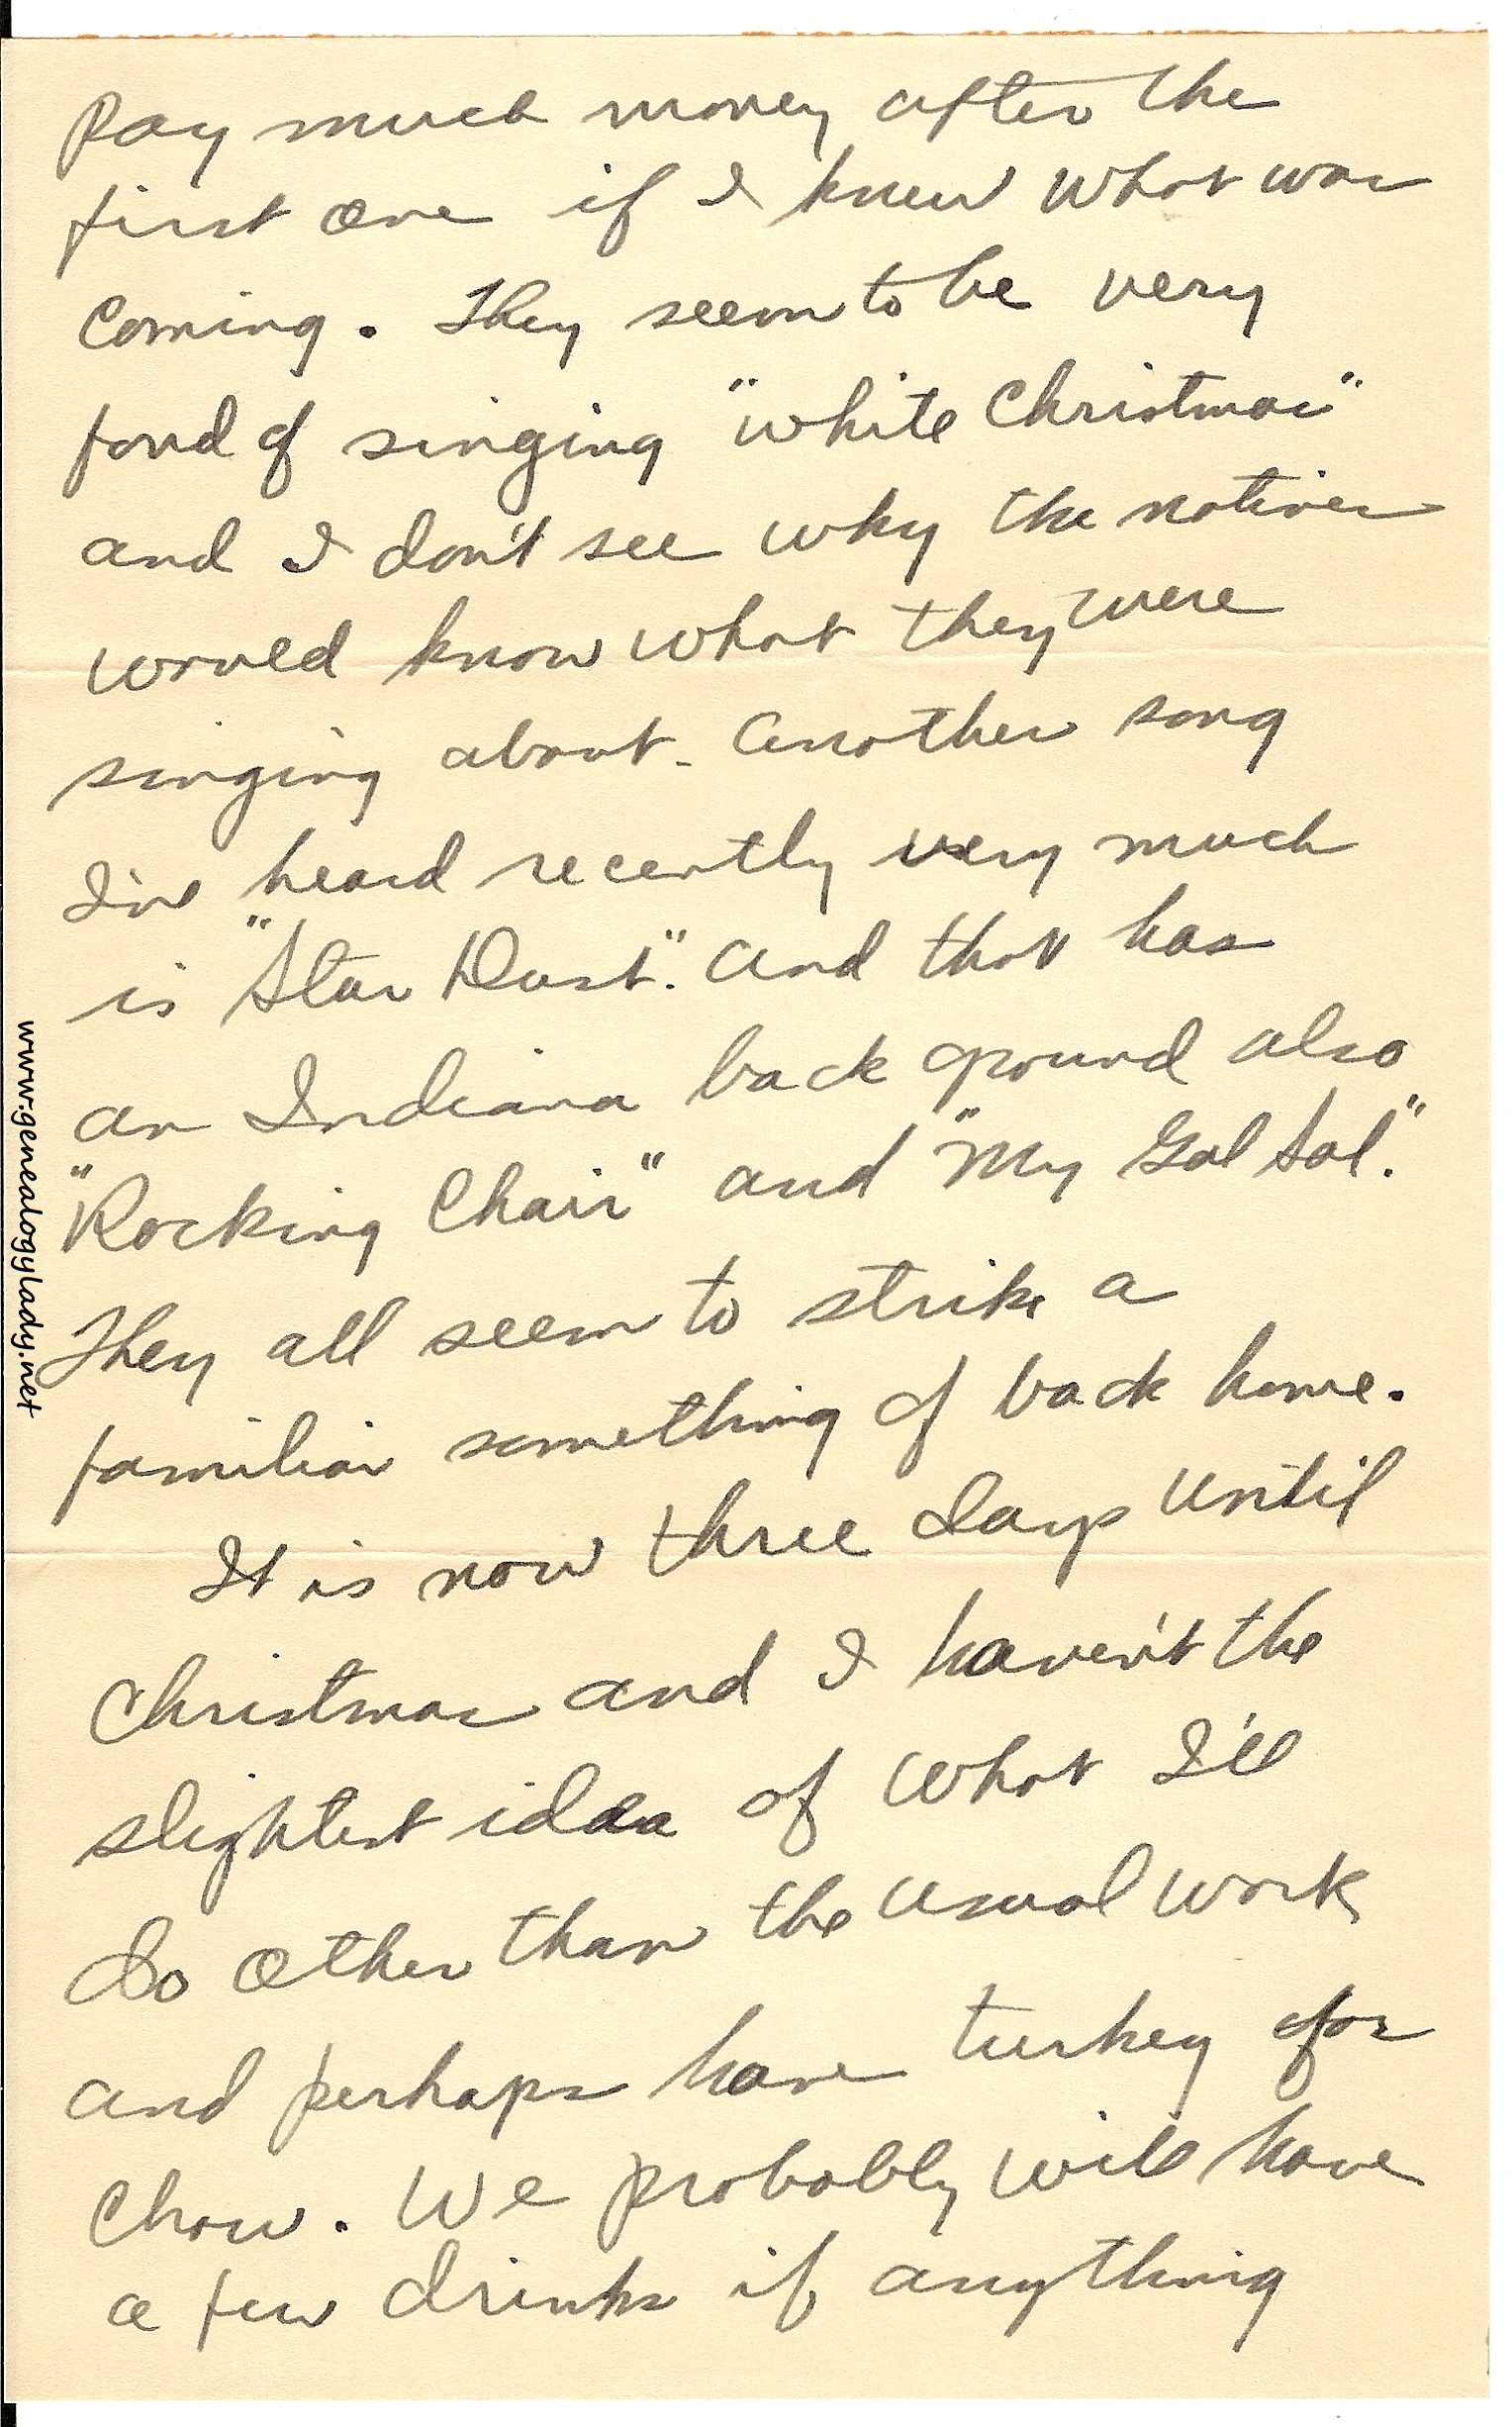 Pay much money after the
first one if I knew what was
coming. They seem to be very
fond of singing "White Christmas"
and I don't see why the natives
would know what they were
singing about. Another song
I've heard recently very much
is "Star Dust". And that has
an Indiana back ground also
"Rocking Chair" and "My Gal Sal."
They all seem to strike a
familiar something of back home.
It is now three days until
Christmas and I haven't the
slightest idea of what I'll
do other than the usual work
and perhaps have turkey for
chow. We probably will have
a few drinks if anything
www.genealogylady.net